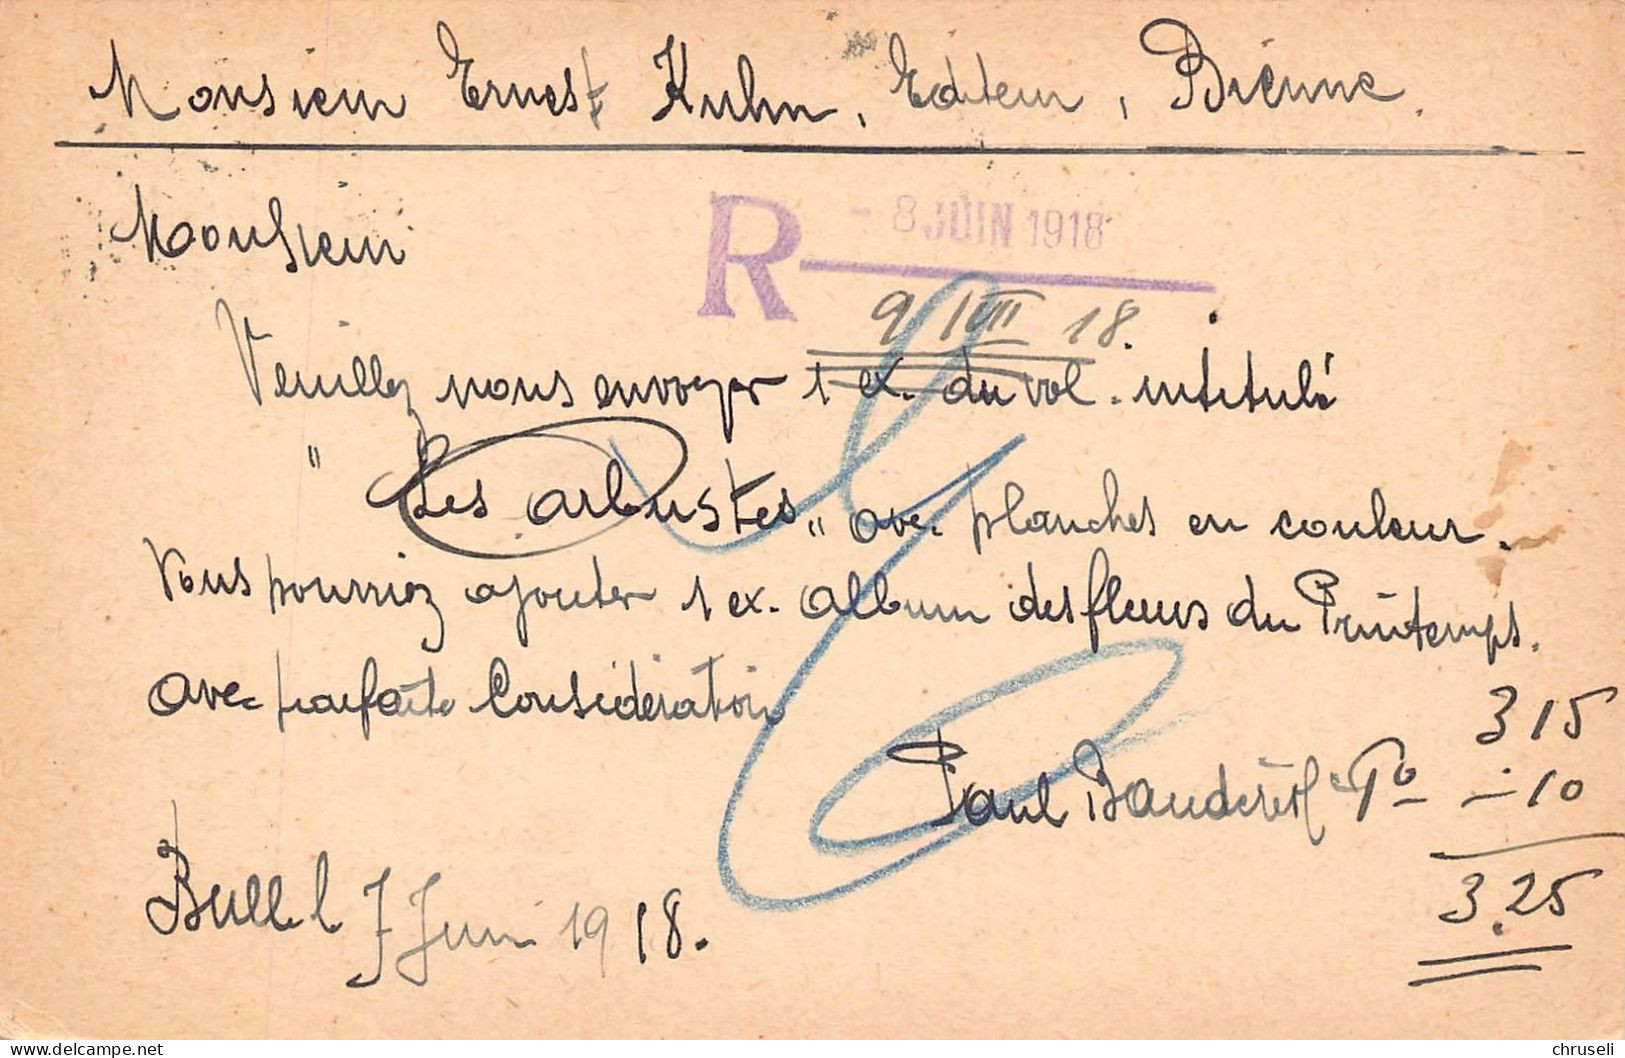 Monsieur Ernest Kuhn, Editeur, Bienne.
Monsieur
R - 8 JUIN 1918
9 VIII 18.
Veuillez nous envoyer 1 ex. du vol. intitulé
" Les arbustes " avec planches en couleur.
Vous pourriez ajouter 1 ex. album des fleurs du Printemps.
avec parfaite Considération
Paul
3 15
Po - 10
3.25
Bulle l 7 Juin 1918.
chruseli